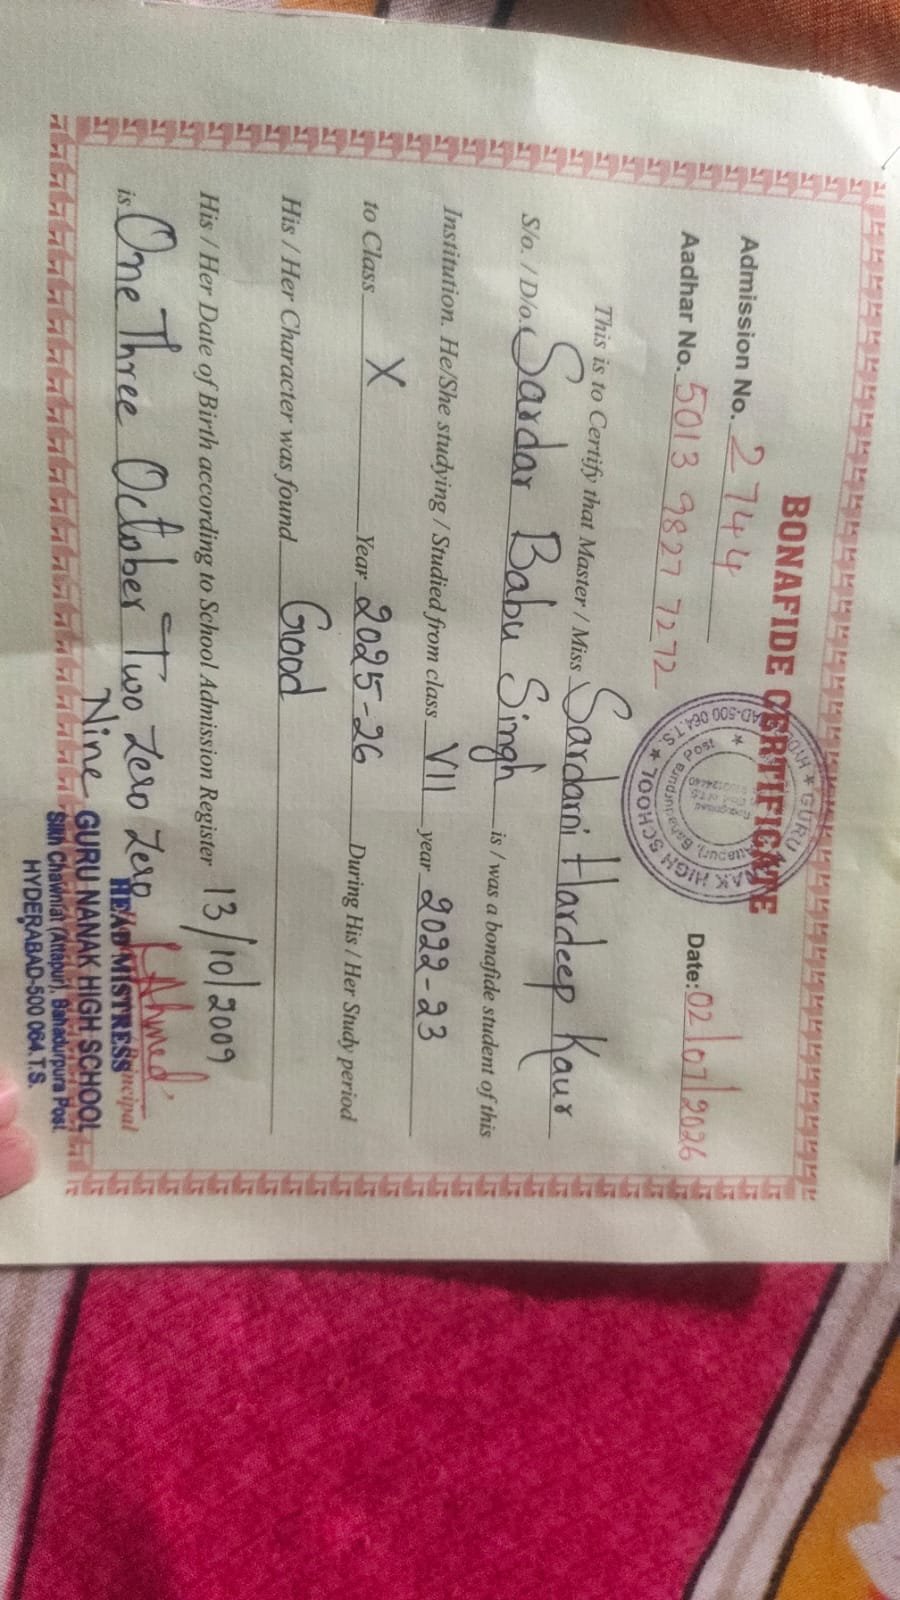 BONAFIDE CERTIFICATE
Admission No. 2744
Aadhar No. 5013 9827 7272
Date: 02/07/2026
This is to Certify that Master / Miss Sardarni Hardeep Kaur
S/o. / D/o. Sardar Babu Singh is / was a bonafide student of this
Institution. He/She studying / Studied from class VII year 2022-23
to Class X Year 2025-26 During His / Her Study period
His / Her Character was found Good
His / Her Date of Birth according to School Admission Register 13/10/2009
is One Three October Two Zero Zero
Nine
HEAD MISTRESS
GURU NANAK HIGH SCHOOL
Sikh Chawni (Attapur), Bahadurpura Post
HYDERABAD-500 064.T.S.